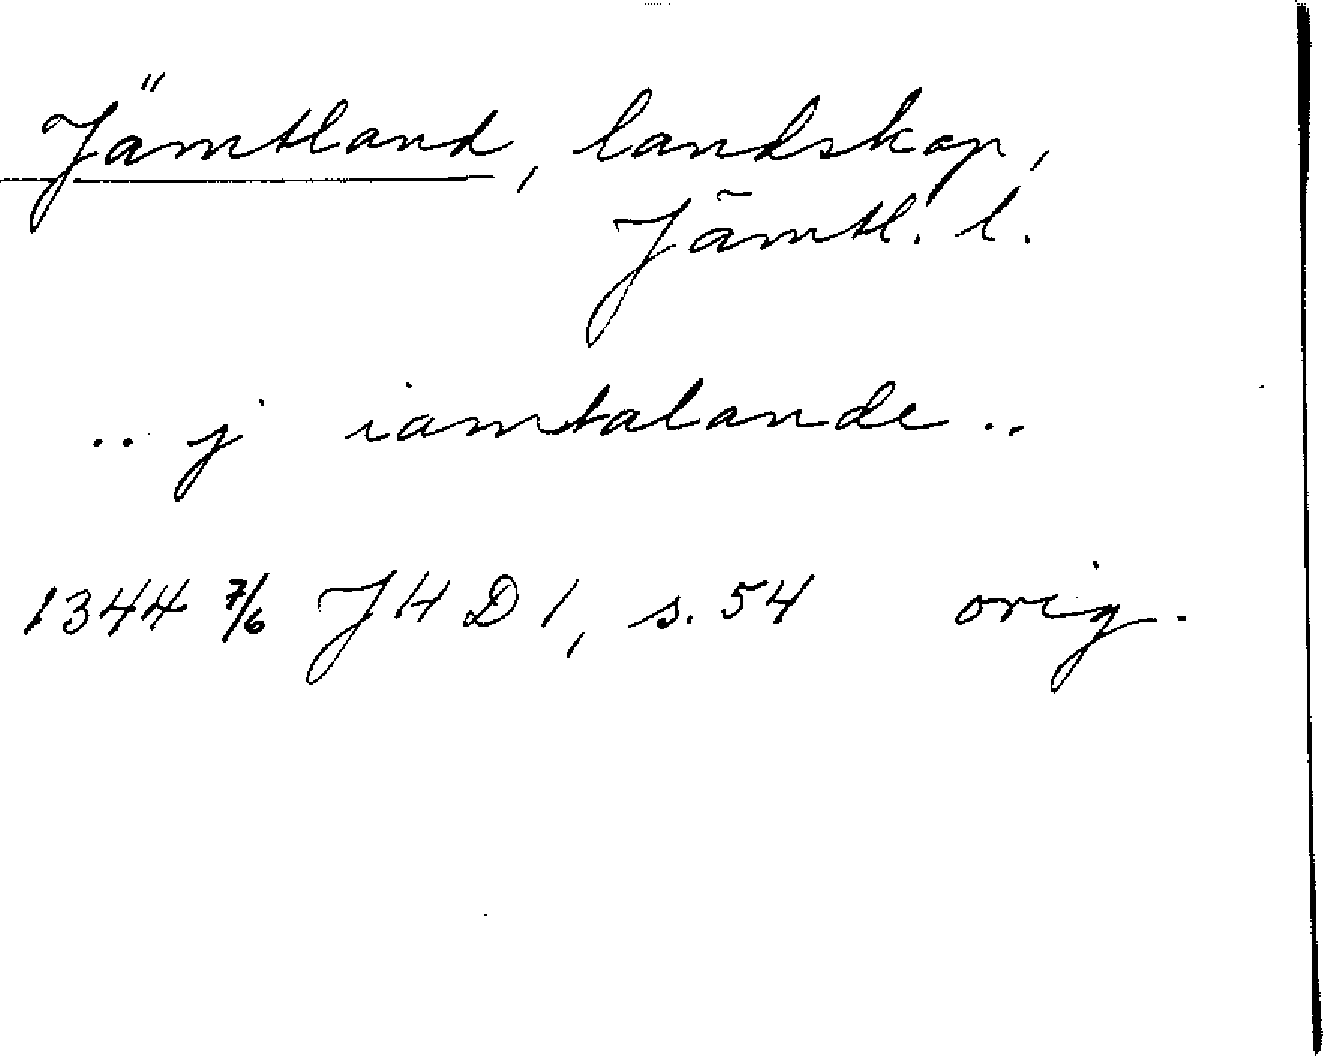 Jämtland, landskap,
Jämtl. l.
.. j iamtalande ..
1344 7/6 JHD 1, s. 54 orig.